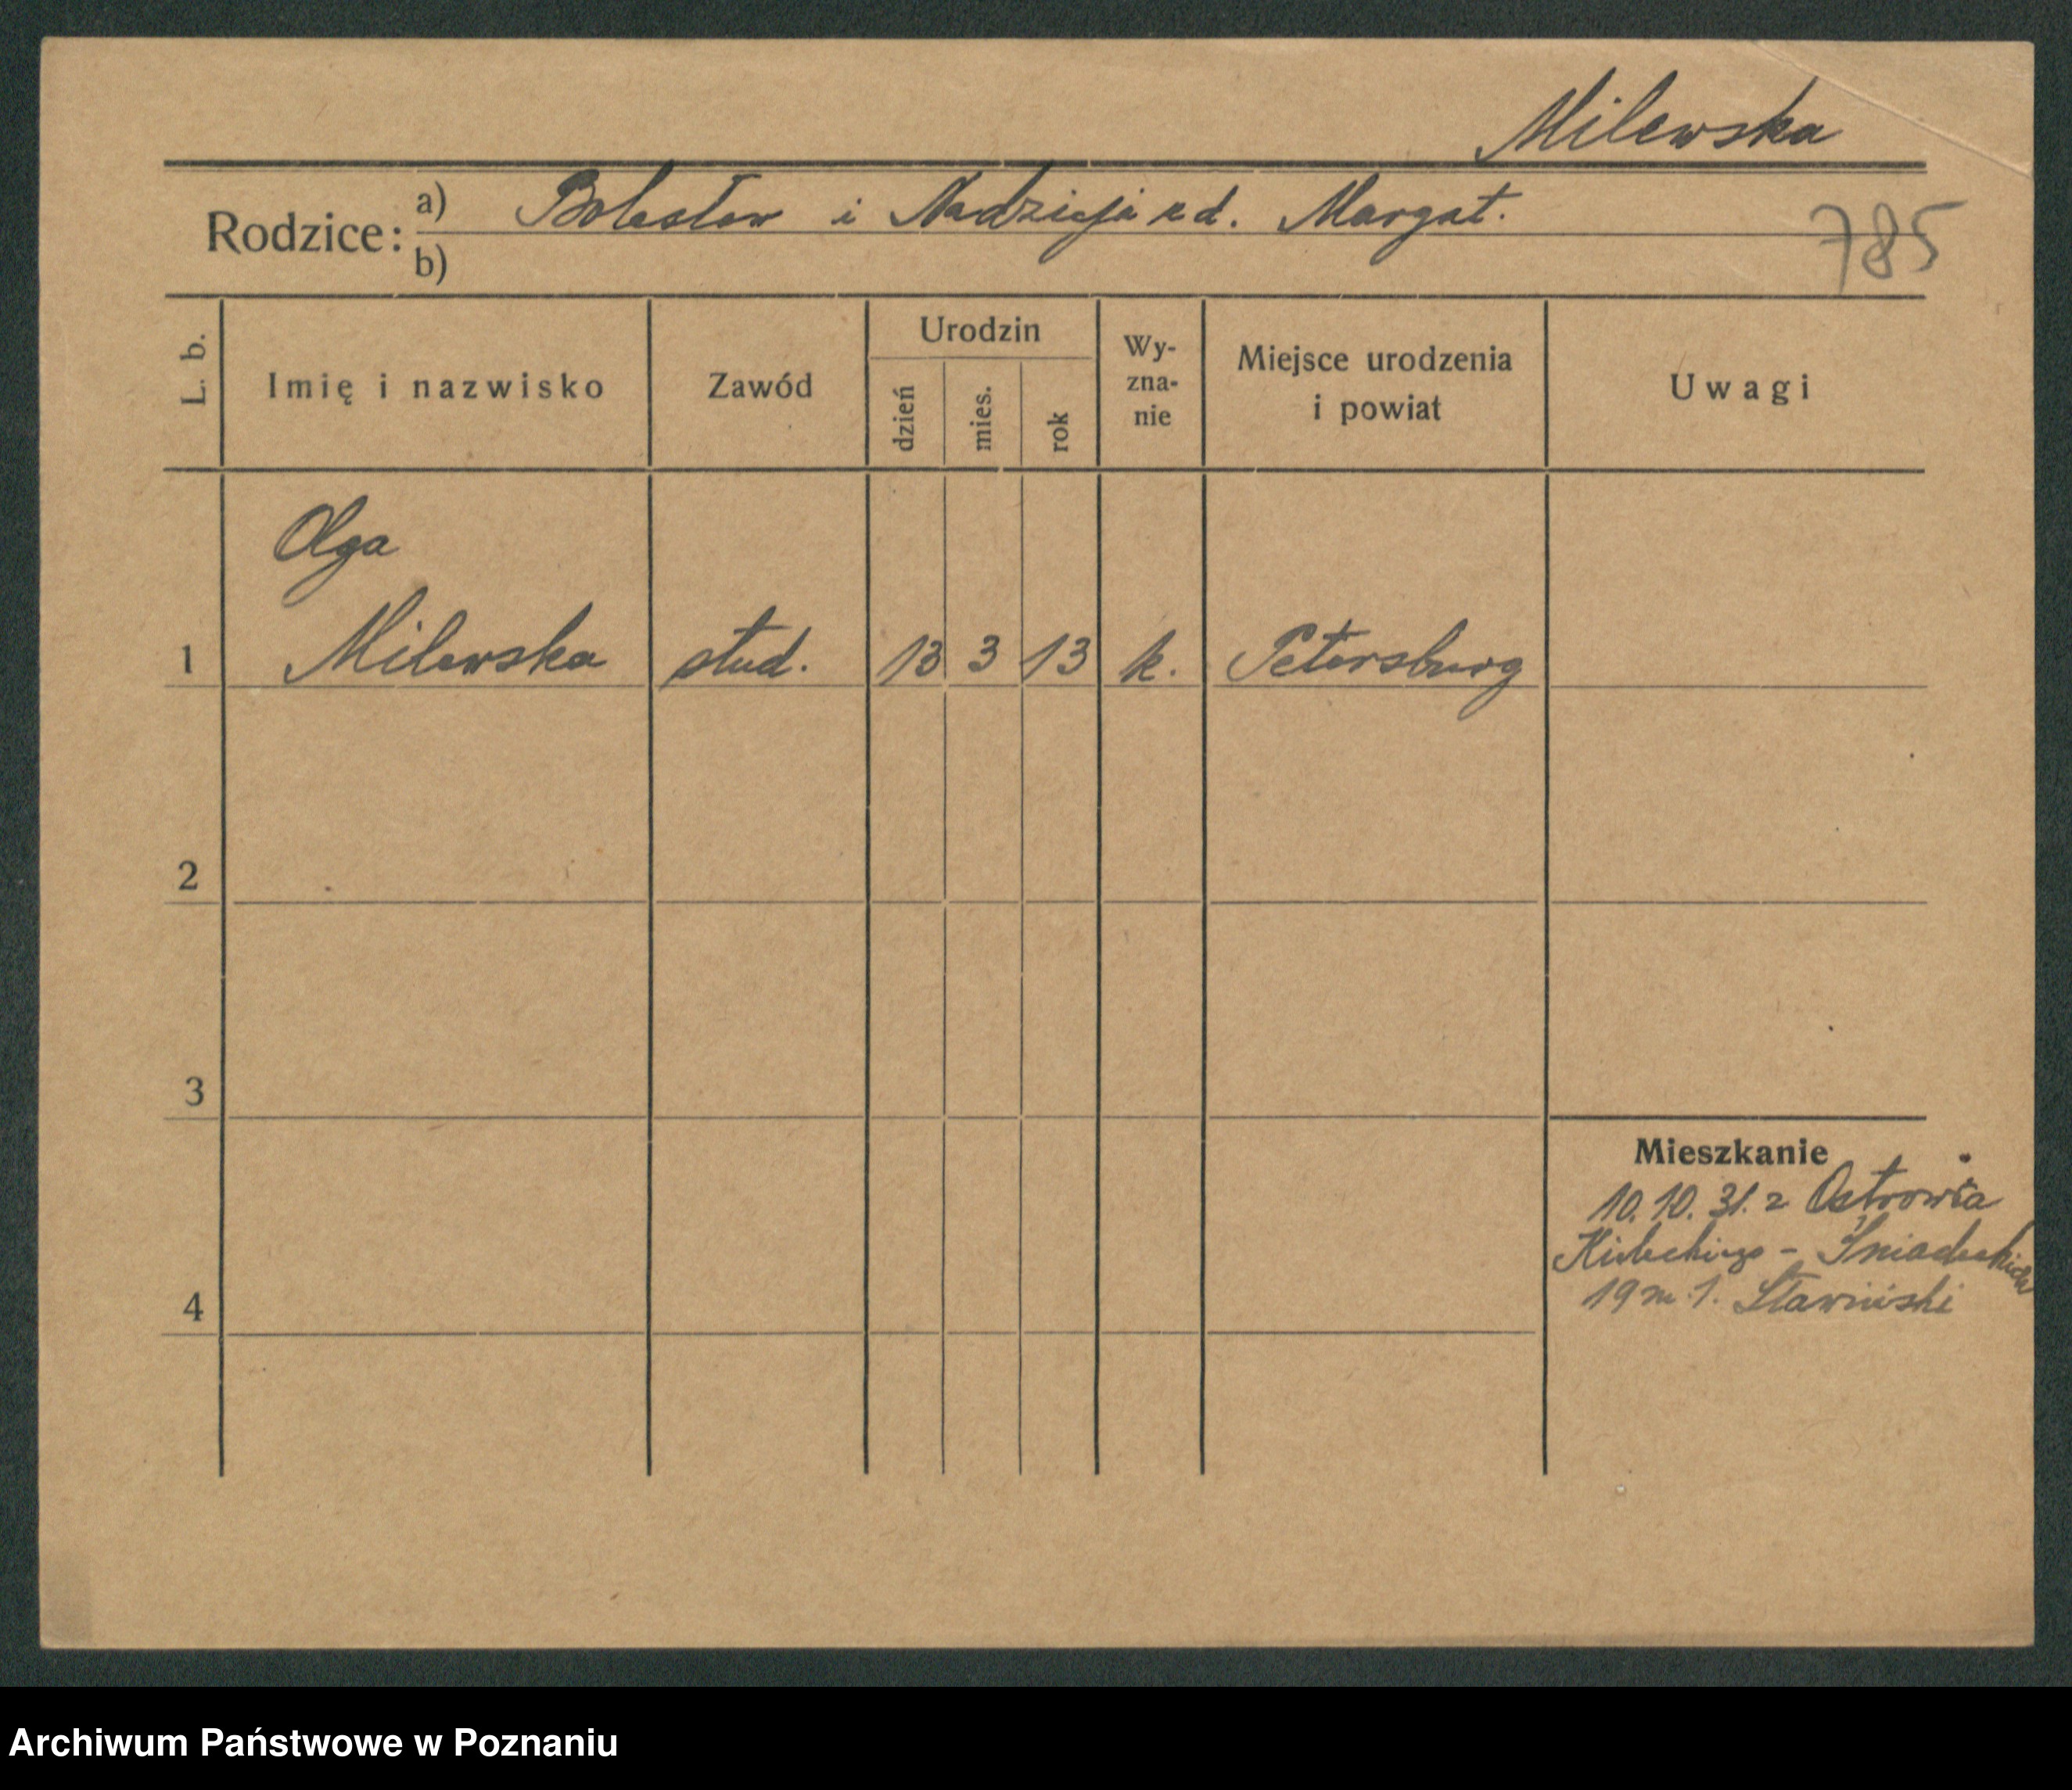 Milewska
Rodzice: a) Bolesław i Nadzieja z d. Margat.
b)
785
L. b.
Imię i nazwisko
Zawód
Urodzin
dzień
mies.
rok
Wy-
zna-
nie
Miejsce urodzenia
i powiat
Uwagi
Olga
1 Milewska stud. 13 3 13 k. Petersburg
2
3
Mieszkanie
10. 10. 31. z Ostrowia
- Śniadeckich
4
19 m. 1. Sławiński
Archiwum Państwowe w Poznaniu